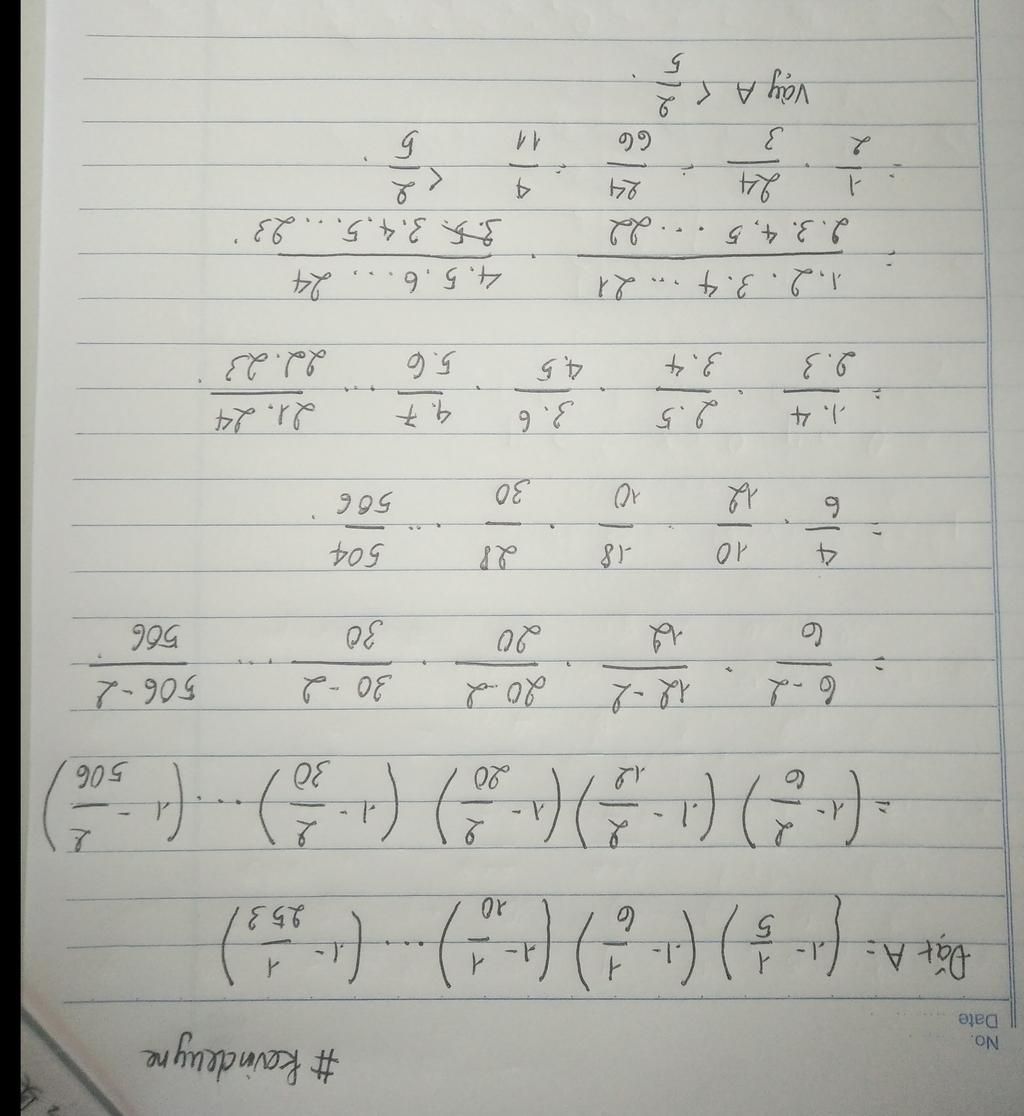 #kevindeuyne
No.
Date
Đặt A = (1 - 1/5) (1 - 1/6) (1 - 1/10) ... (1 - 1/253)
= (1 - 2/6) (1 - 2/12) (1 - 2/20) (1 - 2/30) ... (1 - 2/506)
= 6-2/6 . 12-2/12 . 20-2/20 . 30-2/30 ... 506-2/506 .
= 4/6 . 10/12 . 18/10 . 28/30 ... 504/506 .
= 1.4/2.3 . 2.5/3.4 . 3.6/4.5 . 4.7/5.6 ... 21.24/22.23 .
= 1.2.3.4...21/2.3.4.5...22 . 4.5.6...24/3.4.5...23 .
= 1/2 . 24/3 = 24/66 = 4/11 < 2/5 .
Vậy A < 2/5 .